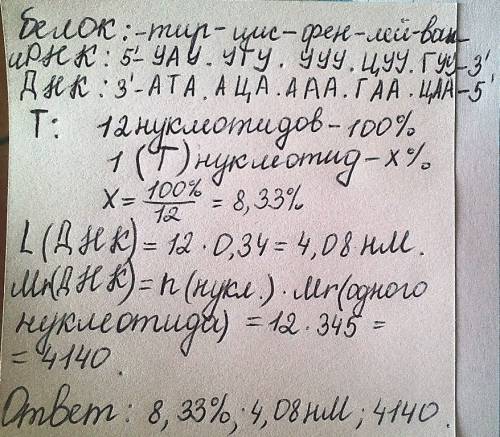 Белок: -тир-цис-фен-лей-вал-
иРНК: 5'-УАУ.УГУ.УУУ.ЦУУ.ГУУ-3'
ДНК: 3'-АТА.АЦА.ААА.ГАА.ЦАА-5'
Т: 12 нуклеотидов - 100%
1 (Т) нуклеотид - х%
Х = 100% / 12 = 8,33%
L (ДНК) = 12 · 0,34 = 4,08 нм.
Mr(ДНК) = n (нукл.) · Mr(одного
нуклеотида) = 12 · 345 =
= 4140.
Ответ: 8,33%; 4,08 нм; 4140.